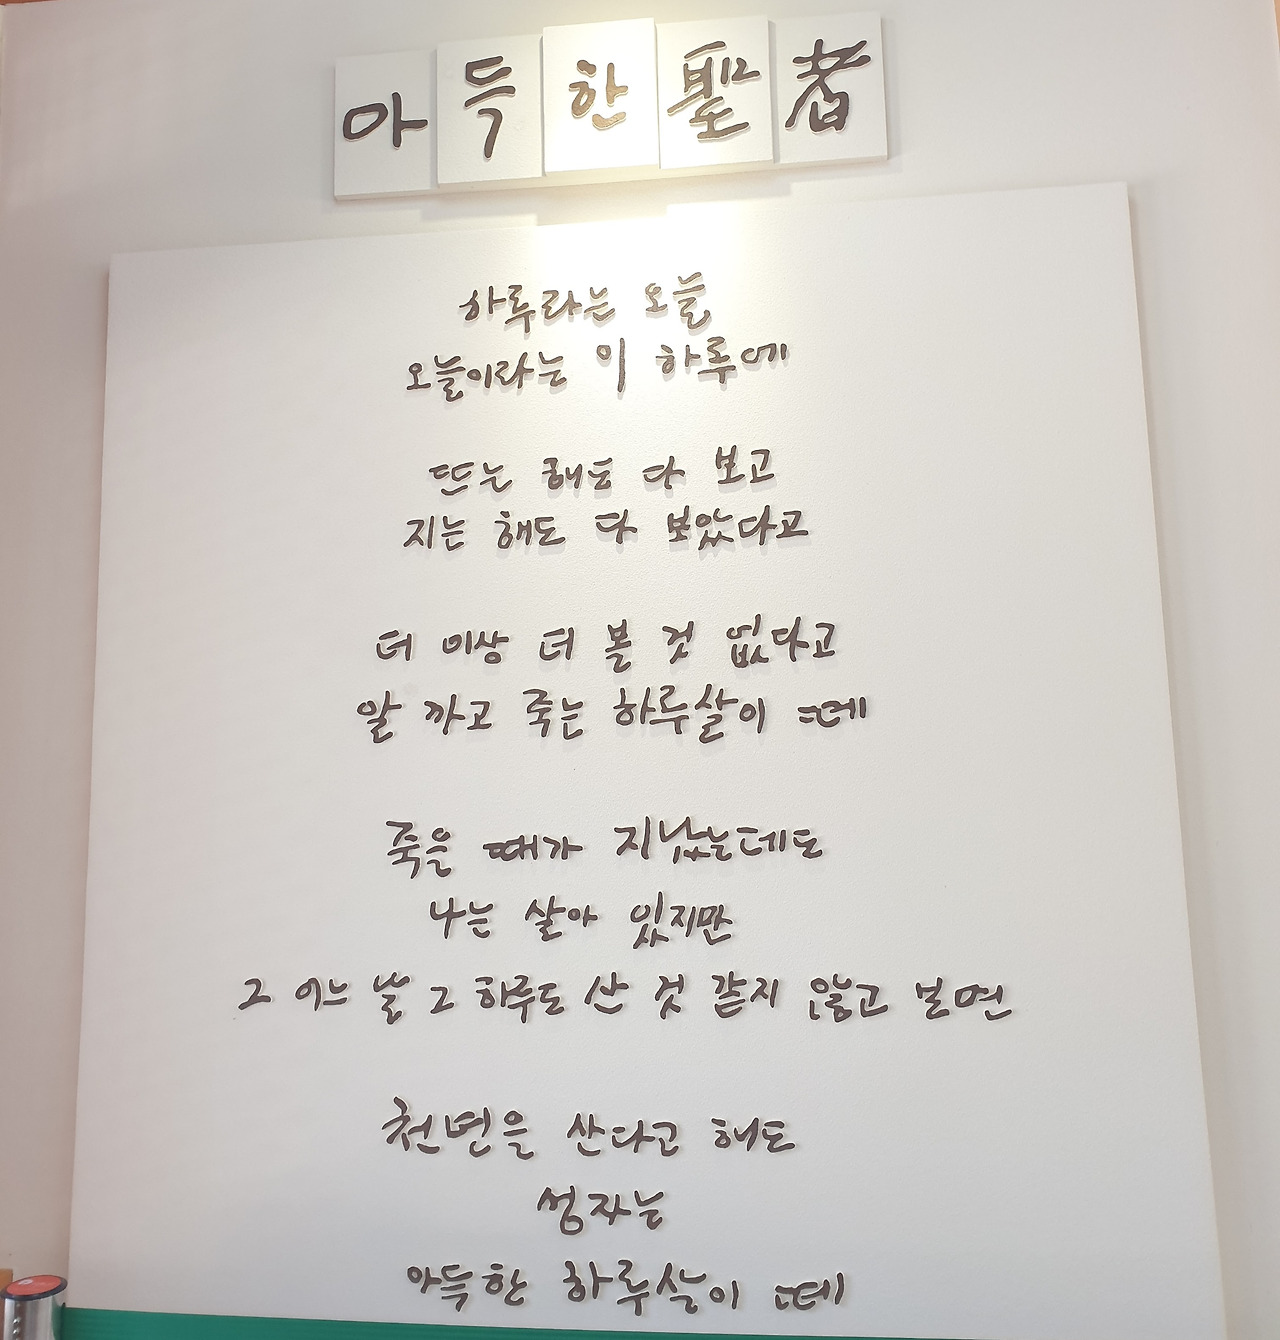 아득한 聖者
하루라는 오늘
오늘이라는 이 하루에
뜨는 해도 다 보고
지는 해도 다 보았다고
더 이상 더 볼 것 없다고
알 까고 죽는 하루살이 떼
죽을 때가 지났는데도
나는 살아 있지만
그 어느 날 그 하루도 산 것 같지 않고 보면
천년을 산다고 해도
성자는
아득한 하루살이 떼